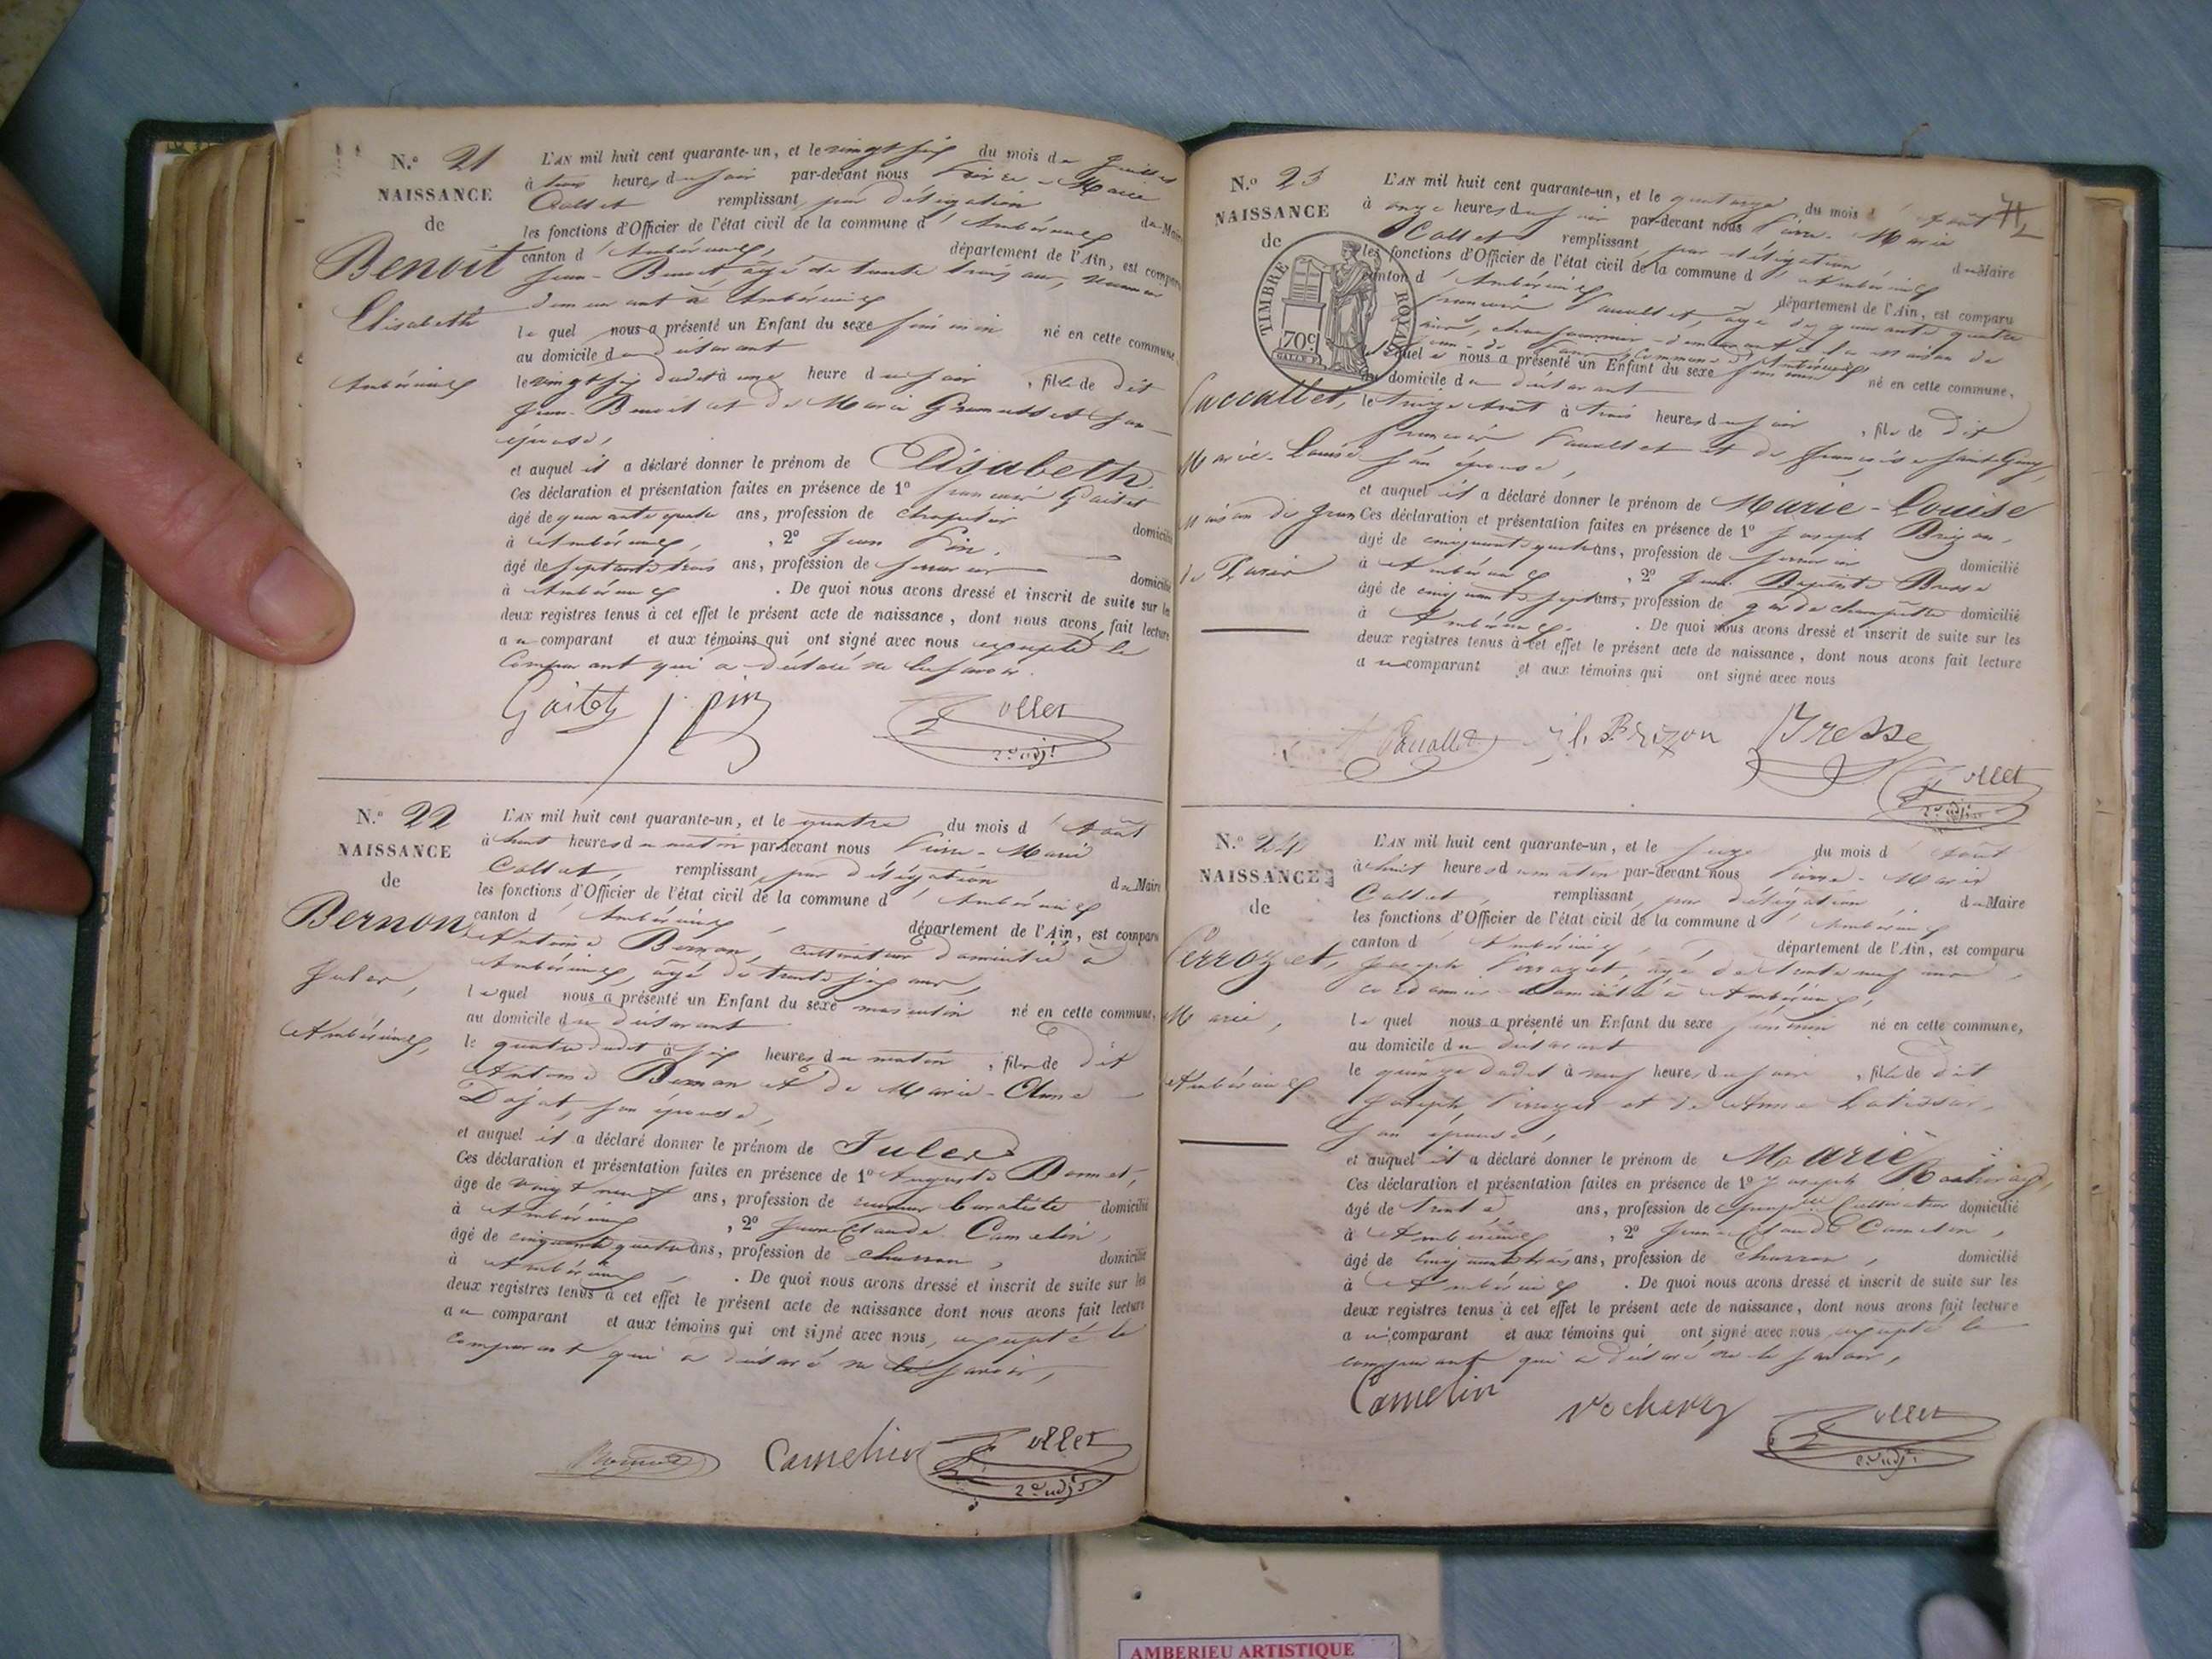 N.° 21
NAISSANCE
de
Benoit
Elisabeth
Ambérieux
L'AN mil huit cent quarante-un, et le vingt six du mois de Juillet
à trois heures du soir par-devant nous Pierre-Marie
Collet remplissant par délégation du Maire
les fonctions d'Officier de l'état civil de la commune d'Ambérieux
canton d'Ambérieux, département de l'Ain, est comparu
Jean-Benoit, âgé de trente trois ans,
demeurant à Ambérieux
lequel nous a présenté un Enfant du sexe féminin né en cette commune
au domicile du déclarant
le vingt six dudit à une heure du soir, fille de dit
Jean-Benoit et de Marie son
épouse,
et auquel il a déclaré donner le prénom de Elisabeth
Ces déclaration et présentation faites en présence de 1° François Gaitet
âgé de quarante quatre ans, profession de domicilié
à Ambérieux, 2° Jean Pin,
âgé de septante trois ans, profession de domicilié
à Ambérieux. De quoi nous avons dressé et inscrit de suite sur les
deux registres tenus à cet effet le présent acte de naissance, dont nous avons fait lecture
au comparant et aux témoins qui ont signé avec nous excepté le
comparant qui a déclaré ne le savoir.
Gaitet J pin Collet
2e adjt
N.° 22
NAISSANCE
de
Bernon
Jules,
Ambérieux,
L'AN mil huit cent quarante-un, et le quatre du mois d'Août
à huit heures du matin par-devant nous Pierre-Marie
Collet, remplissant par délégation du Maire
les fonctions d'Officier de l'état civil de la commune d'Ambérieux
canton d'Ambérieux, département de l'Ain, est comparu
Antoine Bernon, cultivateur domicilié à
Ambérieux, âgé de trente six ans,
lequel nous a présenté un Enfant du sexe masculin né en cette commune,
au domicile du déclarant
le quatre dudit à six heures du matin, fils de dit
Antoine Bernon et de Marie-Anne
Dojat, son épouse,
et auquel il a déclaré donner le prénom de Jules
Ces déclaration et présentation faites en présence de 1° Auguste Bonnet,
âgé de vingt neuf ans, profession de domicilié
à Ambérieux, 2° Jean-Claude Camelin,
âgé de cinquante quatre ans, profession de charron, domicilié
à Ambérieux. De quoi nous avons dressé et inscrit de suite sur les
deux registres tenus à cet effet le présent acte de naissance dont nous avons fait lecture
au comparant et aux témoins qui ont signé avec nous, excepté le
comparant qui a déclaré ne le savoir,
Camelin Collet
2e adjt
N.° 23
NAISSANCE
de
TIMBRE ROYAL
70c
Paccallet,
Marie-Louise
Maison de Jean
de Paris
L'AN mil huit cent quarante-un, et le quatorze du mois d'Août
à onze heures du par-devant nous Pierre-Marie
Collet remplissant par délégation du Maire
les fonctions d'Officier de l'état civil de la commune d'Ambérieux
canton d'Ambérieux département de l'Ain, est comparu
François Paccallet, âgé de quarante quatre
ans, demeurant à la maison de
Jean-de-Paris, commune d'Ambérieux
lequel nous a présenté un Enfant du sexe féminin né en cette commune,
au domicile du déclarant
le treize Août à trois heures du soir, fille de dit
François Paccallet et de Françoise
son épouse,
et auquel il a déclaré donner le prénom de Marie-Louise
Ces déclaration et présentation faites en présence de 1° Joseph Brizon,
âgé de cinquante quatre ans, profession de domicilié
à Ambérieux, 2° Jean Baptiste Bresse
âgé de cinquante sept ans, profession de garde champêtre domicilié
à Ambérieux. De quoi nous avons dressé et inscrit de suite sur les
deux registres tenus à cet effet le présent acte de naissance, dont nous avons fait lecture
au comparant et aux témoins qui ont signé avec nous
Paccallet Brizon Bresse
Collet
2e adjt
N.° 24
NAISSANCE
de
Perrozet,
Marie,
Ambérieux
L'AN mil huit cent quarante-un, et le seize du mois d'Août
à huit heures du matin par-devant nous Pierre-Marie
Collet, remplissant par délégation du Maire
les fonctions d'Officier de l'état civil de la commune d'Ambérieux
canton d'Ambérieux, département de l'Ain, est comparu
Joseph Perrozet, âgé de trente neuf ans,
cordonnier domicilié à Ambérieux,
lequel nous a présenté un Enfant du sexe féminin né en cette commune,
au domicile du déclarant
le quinze dudit à neuf heures du soir, fille de dit
Joseph Perrozet et de Anne
son épouse,
et auquel il a déclaré donner le prénom de Marie
Ces déclaration et présentation faites en présence de 1° Joseph
âgé de trente ans, profession de cultivateur domicilié
à Ambérieux, 2° Jean-Claude Camelin,
âgé de cinquante trois ans, profession de charron, domicilié
à Ambérieux. De quoi nous avons dressé et inscrit de suite sur les
deux registres tenus à cet effet le présent acte de naissance, dont nous avons fait lecture
au comparant et aux témoins qui ont signé avec nous excepté le
comparant qui a déclaré ne le savoir,
Camelin Collet
2e adjt
AMBERIEU ARTISTIQUE